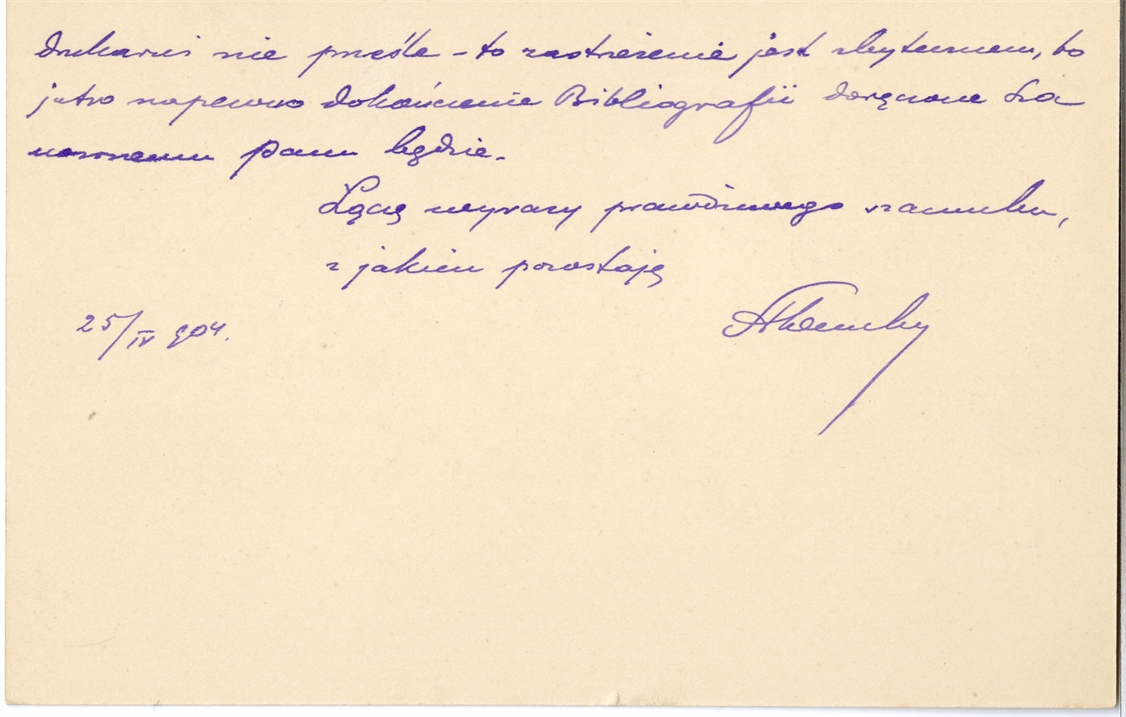 drukarni nie prześle – to zastrzeżenie jest zbytecznem, bo
jutro napewno dokończenie Bibliografii doręczone Sza
nownemu Panu będzie.
Łączę wyrazy prawdziwego szacunku,
z jakiem pozostaję
25/IV 904.